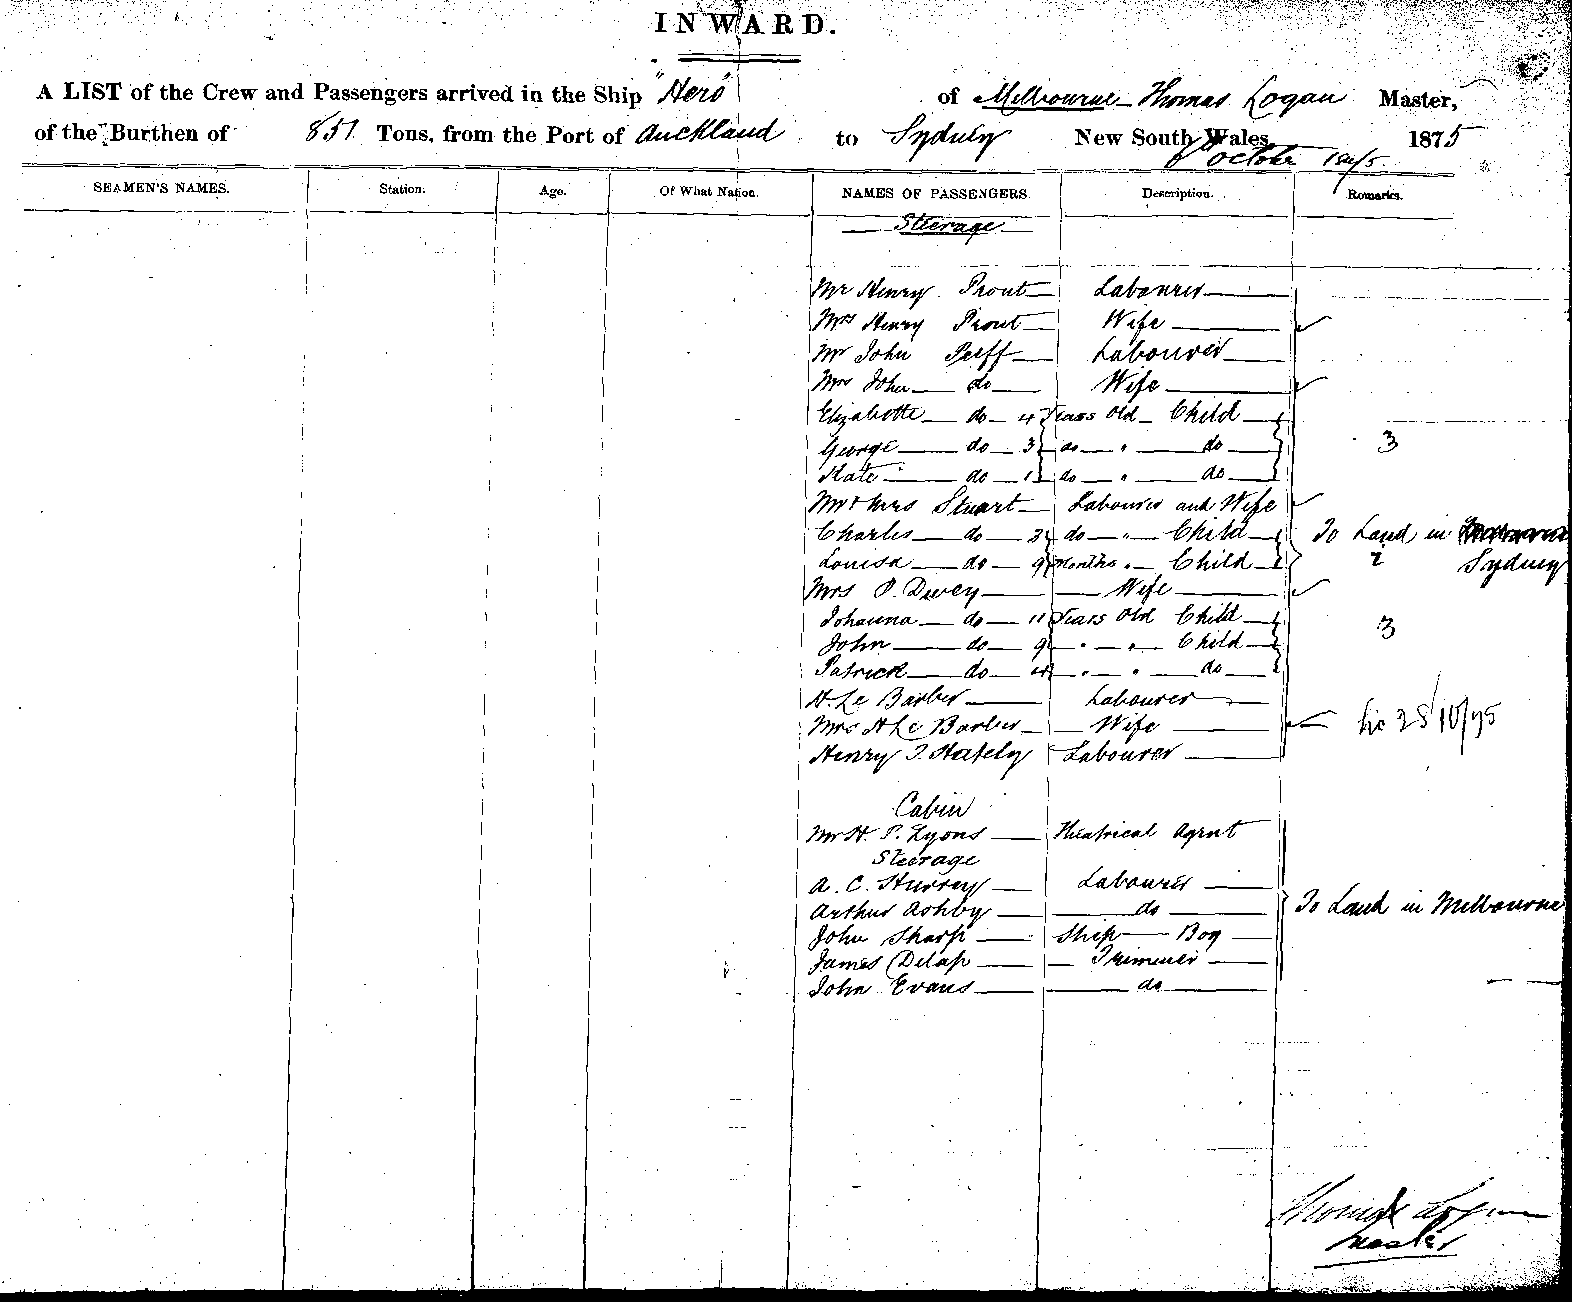 INWARD.
A LIST of the Crew and Passengers arrived in the Ship "Hero" of Melbourne Thomas Logan Master,
of the Burthen of 851 Tons, from the Port of Auckland to Sydney New South Wales, 1875
October 1875
SEAMEN'S NAMES. Station. Age. Of What Nation. NAMES OF PASSENGERS. Description. Remarks.
Steerage
Mr Henry Prout Labourer
Mrs Henry Prout Wife
Mr John Peiff Labourer
Mrs John do Wife
Elizabette do 4 Years Old Child
George do 3 do " do 3
Kate do 1 do " do
Mr & Mrs Stuart Labourer and Wife
Charles do 3 do " Child To Land in
Louisa do 9 Months " Child 2 Sydney
Mrs P. Divey Wife
Johanna do 11 Years Old Child 3
John do 9 " " Child
Patrick do 4 " " do
H. Le Barber Labourer
Mrs H Le Barber Wife 25/10/75
Henry J. Hately Labourer
Cabin
Mr H. P. Lyons Theatrical Agent
Steerage
A. C. Hurrey Labourer
Arthur Ashby do To Land in Melbourne
John Sharp Ship Boy
James Delap Trimmer
John Evans do
Thomas Logan
Master